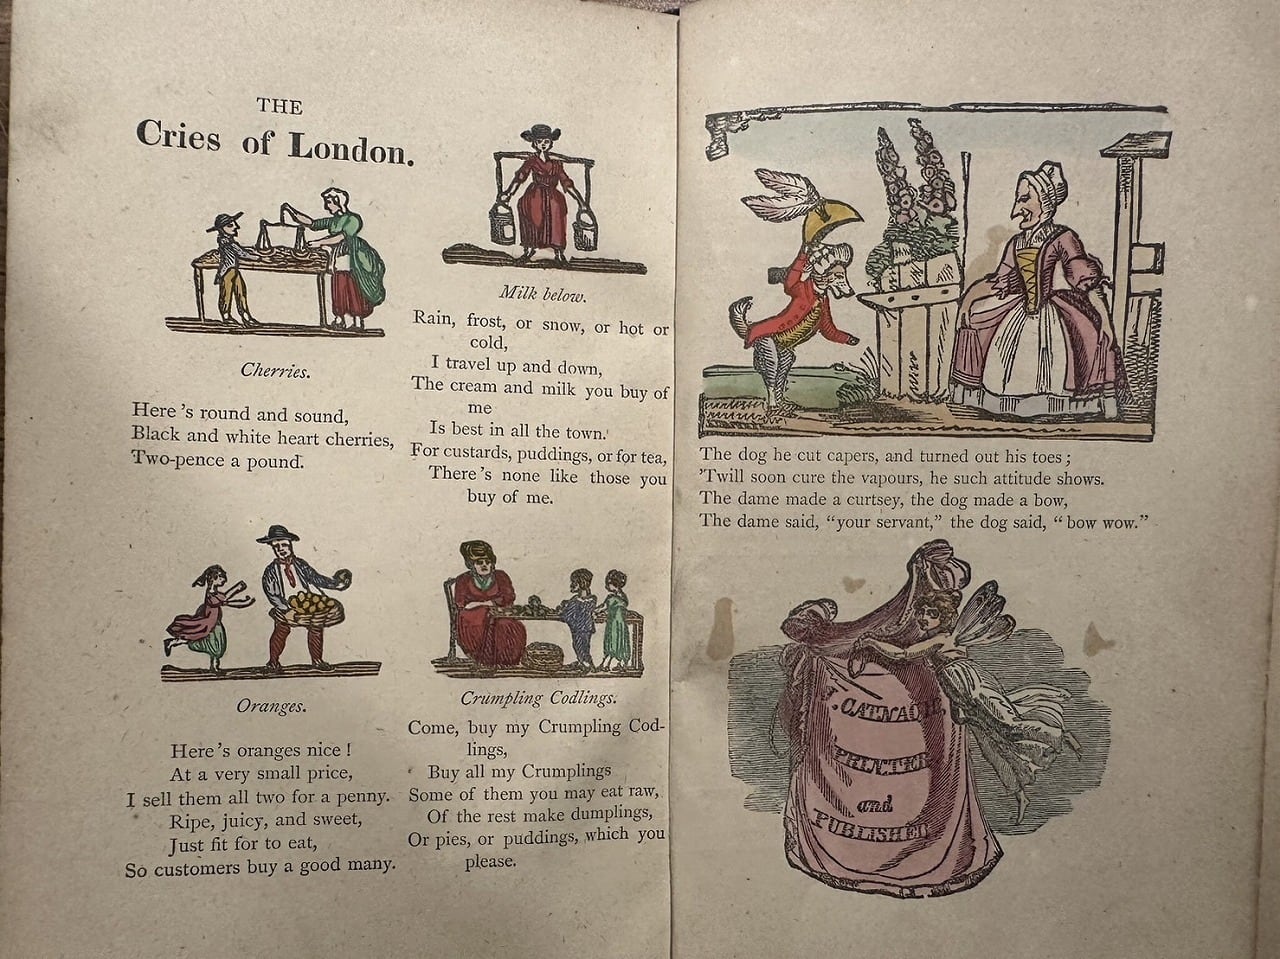 THE
Cries of London.
Cherries.
Here's round and sound,
Black and white heart cherries,
Two-pence a pound.
Oranges.
Here's oranges nice!
At a very small price,
I sell them all two for a penny.
Ripe, juicy, and sweet,
Just fit for to eat,
So customers buy a good many.
Milk below.
Rain, frost, or snow, or hot or
cold,
I travel up and down,
The cream and milk you buy of
me
Is best in all the town.
For custards, puddings, or for tea,
There's none like those you
buy of me.
Crumpling Codlings.
Come, buy my Crumpling Cod-
lings,
Buy all my Crumplings
Some of them you may eat raw,
Of the rest make dumplings,
Or pies, or puddings, which you
please.
The dog he cut capers, and turned out his toes;
'Twill soon cure the vapours, he such attitude shows.
The dame made a curtsey, the dog made a bow,
The dame said, "your servant," the dog said, "bow wow."
J. CATNACH
PRINTER
and
PUBLISHER